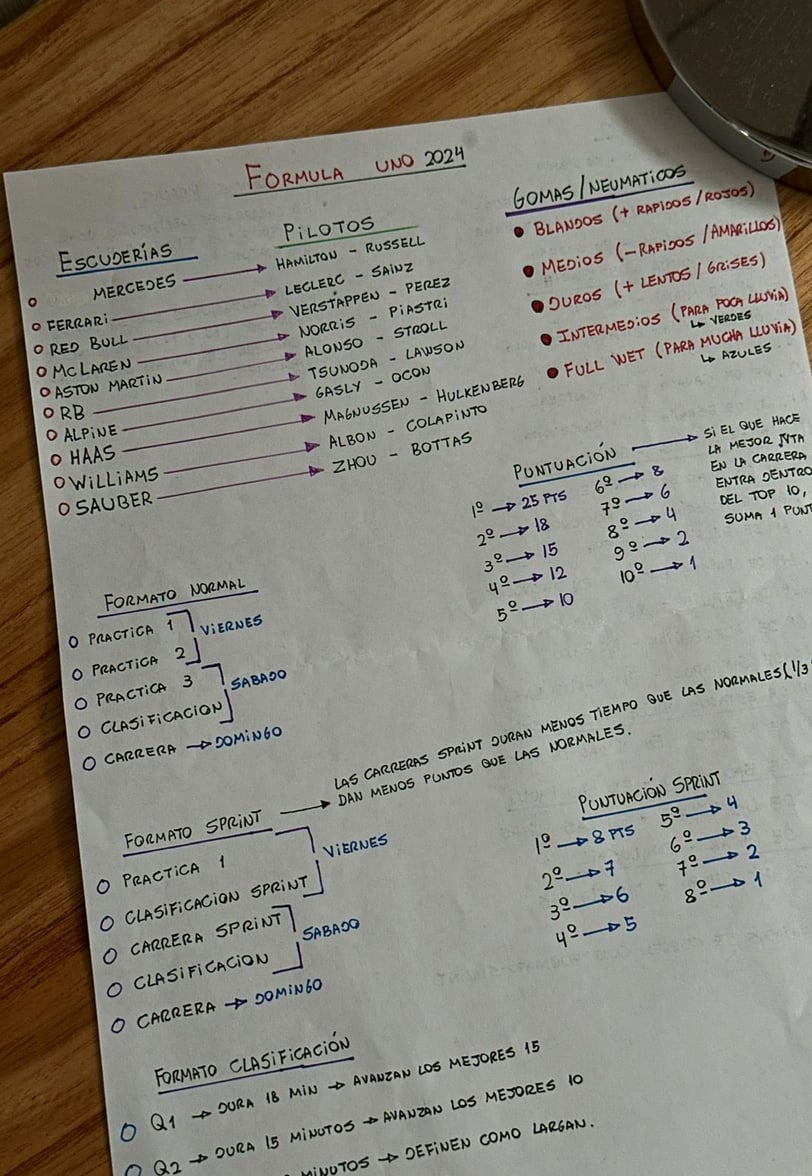 FORMULA UNO 2024
ESCUDERÍAS
MERCEDES
FERRARI
RED BULL
MCLAREN
ASTON MARTIN
RB
ALPINE
HAAS
WILLIAMS
SAUBER
PILOTOS
HAMILTON - RUSSELL
LECLERC - SAINZ
VERSTAPPEN - PEREZ
NORRIS - PIASTRI
ALONSO - STROLL
TSUNODA - LAWSON
GASLY - OCON
MAGNUSSEN - HULKENBERG
ALBON - COLAPINTO
ZHOU - BOTTAS
GOMAS/NEUMATICOS
BLANDOS (+ RAPIDOS/ROJOS)
MEDIOS (-RAPIDOS/AMARILLOS)
DUROS (+ LENTOS/GRISES)
INTERMEDIOS (PARA POCA LLUVIA)
↳ VERDES
FULL WET (PARA MUCHA LLUVIA)
↳ AZULES
PUNTUACIÓN →
1º → 25 PTS
2º → 18
3º → 15
4º → 12
5º → 10
6º → 8
7º → 6
8º → 4
9º → 2
10º → 1
SI EL QUE HACE
LA MEJOR
EN LA CARRERA
ENTRA DENTRO
DEL TOP 10,
SUMA 1
FORMATO NORMAL
PRACTICA 1
PRACTICA 2
VIERNES
PRACTICA 3
CLASIFICACION
SABADO
CARRERA → DOMINGO
FORMATO SPRINT →
LAS CARRERAS SPRINT DURAN MENOS TIEMPO QUE LAS NORMALES (1/3
DAN MENOS PUNTOS QUE LAS NORMALES.
PRACTICA 1
CLASIFICACION SPRINT
VIERNES
CARRERA SPRINT
CLASIFICACION
SABADO
CARRERA → DOMINGO
PUNTUACIÓN SPRINT
1º → 8 PTS
2º → 7
3º → 6
4º → 5
5º → 4
6º → 3
7º → 2
8º → 1
FORMATO CLASIFICACIÓN
Q1 → DURA 18 MIN → AVANZAN LOS MEJORES 15
Q2 → DURA 15 MINUTOS → AVANZAN LOS MEJORES 10
MINUTOS → DEFINEN COMO LARGAN.